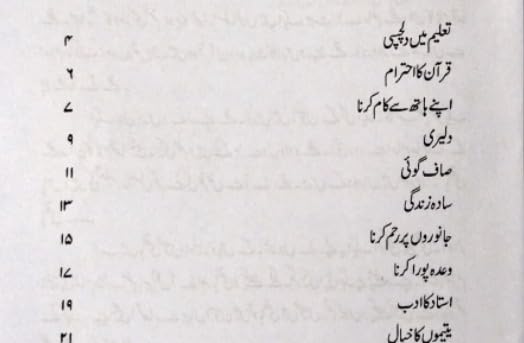 تعلیم میں دلچسپی ۴
قرآن کا احترام ۶
اپنے ہاتھ سے کام کرنا ۷
دلیری ۹
صاف گوئی ۱۱
سادہ زندگی ۱۳
جانوروں پر رحم کرنا ۱۵
وعدہ پورا کرنا ۱۷
استاد کا ادب ۱۹
یتیموں کا خیال ۲۱